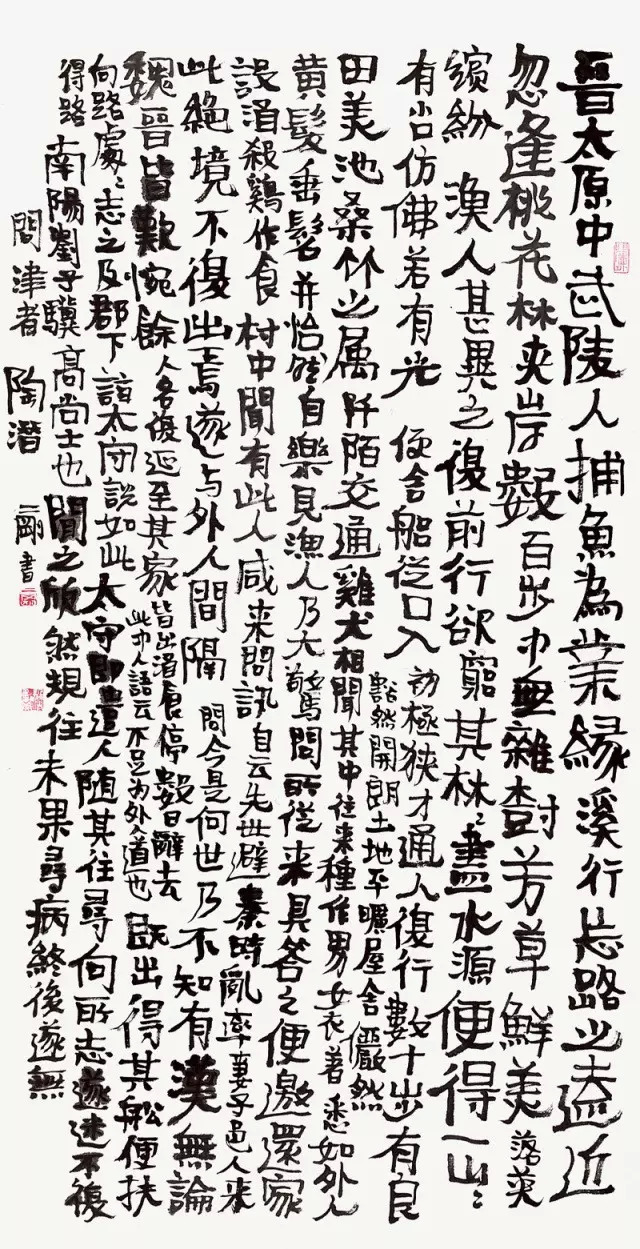 晉太原中武陵人捕魚為業緣溪行忘路之遠近
忽逢桃花林夾岸數百步中無雜樹芳草鮮美落英
繽紛漁人甚異之復前行欲窮其林〻盡水源便得一山〻
有小口仿佛若有光便舍船從口入初極狹才通人復行數十步豁然開朗土地平曠屋舍儼然有良
田美池桑竹之属阡陌交通雞犬相聞其中往来種作男女衣著悉如外人
黄髮垂髫并怡然自樂見漁人乃大驚問所從来具答之便邀還家
設酒殺鷄作食村中聞有此人咸来問訊自云先世避秦時亂率妻子邑人来
此絕境不復出焉遂与外人間隔問今是何世乃不知有漢無論
魏晉皆歎惋餘人各復延至其家皆出酒食停數日辭去此中人語云不足为外人道也既出得其船便扶
向路處〻志之及郡下詣太守說如此太守即遣人随其往尋向所志遂迷不復
得路南陽劉子驥高尚士也聞之欣然規往未果尋病終後遂無
問津者陶潛二剛書